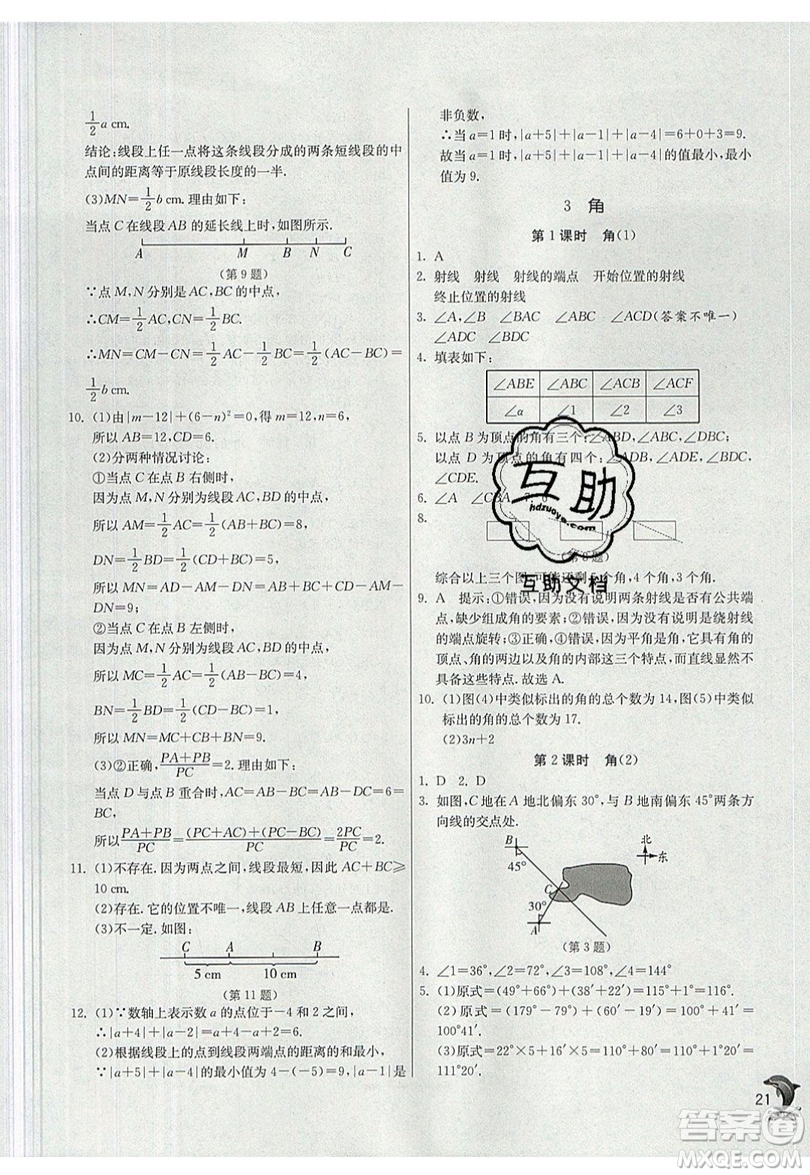 1/2 a cm.
结论:线段上任一点将这条线段分成的两条短线段的中
点间的距离等于原线段长度的一半.
(3)MN=1/2 b cm. 理由如下:
当点 C 在线段 AB 的延长线上时,如图所示.
A M B N C
(第 9 题)
∵点 M,N 分别是 AC,BC 的中点,
∴CM=1/2 AC,CN=1/2 BC.
∴MN=CM-CN=1/2 AC-1/2 BC=1/2 (AC-BC)=
1/2 b cm.
10. (1)由|m-12|+(6-n)²=0,得 m=12,n=6,
所以 AB=12,CD=6.
(2)分两种情况讨论:
①当点 C 在点 B 右侧时,
因为点 M,N 分别为线段 AC,BD 的中点,
所以 AM=1/2 AC=1/2 (AB+BC)=8,
DN=1/2 BD=1/2 (CD+BC)=5,
所以 MN=AD-AM-DN=12+6+4-AM-
DN=9;
②当点 C 在点 B 左侧时,
因为点 M,N 分别为线段 AC,BD 的中点,
所以 MC=1/2 AC=1/2 (AB-BC)=4,
BN=1/2 BD=1/2 (CD-BC)=1,
所以 MN=MC+CB+BN=9.
(3)②正确,(PA+PB)/PC=2. 理由如下:
当点 D 与点 B 重合时,AC=AB-DC=AB-6=
BC,
所以(PA+PB)/PC=((PC+AC)+(PC-BC))/PC=2PC/PC=2.
11. (1)不存在. 因为两点之间,线段最短,因此 AC+BC⩾
10 cm.
(2)存在. 它的位置不唯一,线段 AB 上任意一点都是.
(3)不一定. 如图:
C A B
5 cm 10 cm
(第 11 题)
12. (1)∵数轴上表示数 a 的点位于-4 和 2 之间,
∴|a+4|+|a-2|=a+4-a+2=6.
(2)根据线段上的点到线段两端点的距离的和最小,
∵|a+5|+|a-4|的最小值为 4-(-5)=9,|a-1|是
非负数,
∴当 a=1 时,|a+5|+|a-1|+|a-4|=6+0+3=9.
故当 a=1 时,|a+5|+|a-1|+|a-4|的值最小,最小
值为 9.
3 角
第 1 课时 角(1)
1. A
2. 射线 射线 射线的端点 开始位置的射线
终止位置的射线
3. ∠A,∠B ∠ACB ∠ACD(答案不唯一)
∠ADC ∠BDC
4. 填表如下:
∠ABE ∠ABC ∠ACB ∠ACF
∠α ∠1 ∠2 ∠3
5. 以点 B 为顶点的角有三个:∠ABD,∠ABC,∠DBC;
以点 D 为顶点的角有四个:∠ADB,∠ADE,∠BDC,
∠CDE.
6. ∠A
8.
综合以上三个图,可能还剩 5 个角,4 个角,3 个角.
9. A 提示:①错误,因为没有说明两射线是否有公共端
点,缺少组成角的要素;②错误,因为没有说明是绕射线
的端点旋转;③正确;④错误,因为平角是角,它具有角的
顶点、角的两边以及角的内部这三个特点,而直线则不
具备这些特点. 故选 A.
10. (1)图(4)中类似标出的角的总个数为 14,图(5)中类似
标出的角的总个数为 17.
(2)3n+2
第 2 课时 角(2)
1. D 2. D
3. 如图,C 地在 A 地北偏东 30°,与 B 地南偏东 45°两条方
向线的交点处.
B 北
45° 东
C
30°
A
(第 3 题)
4. ∠1=36° ∠2=72° ∠3=108° ∠4=144°
5. (1)原式=(49°+66°)+(38′+22′)=115°+1°=116°.
(2)原式=(179°-79°)+(60′-18′-1′)=100°+41′=
100°41′.
(3)原式=22°×5+16′×5=110°+80′=110°+1°20′=
111°20′.
21
互助
hdzuoye.com
互助文档
答案圈
MXQE.COM